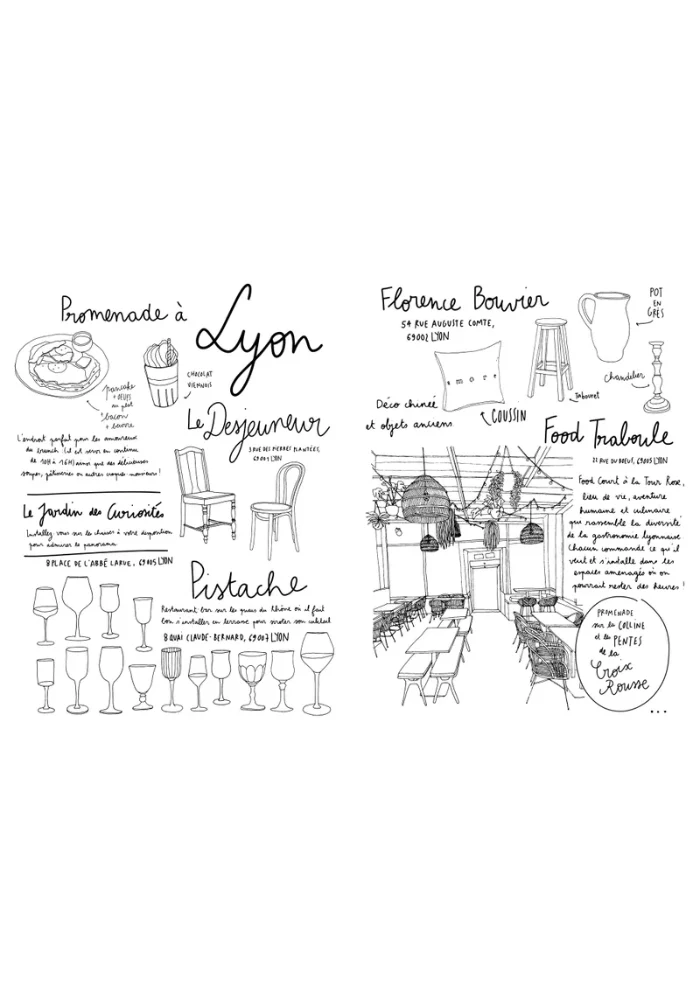 Promenade à
Lyon
pancake
+ OEUFS
au plat
bacon
+ beurre
CHOCOLAT
VIENNOIS
Le Desjeuneur
3 RUE DES PIERRES PLANTÉES,
69001 LYON
L'endroit parfait pour les amoureux
du brunch (il est servi en continu
de 10H à 16H) ainsi que des délicieuses
soupes, pâtisseries ou autres croques-monsieurs !
Le Jardin des Curiosités
Installez vous sur les chaises à votre disposition
pour admirer le panorama
8 PLACE DE L'ABBÉ LARUE, 69005 LYON
Pistache
Restaurant bar sur les quais du Rhône où il fait
bon s'installer en terrasse pour siroter son cocktail
8 QUAI CLAUDE-BERNARD, 69007 LYON
Florence Bouvier
54 RUE AUGUSTE COMTE,
69002 LYON
POT
EN
GRÈS
amore
Tabouret
Chandelier
Déco chinée
et objets anciens
COUSSIN
Food Traboule
22 RUE DU BOEUF, 69005 LYON
Food Court à la Tour Rose,
lieu de vie, aventure
humaine et culinaire
que rassemble la diversité
de la gastronomie lyonnaise
Chacun commande ce qu'il
veut et s'installe dans les
espaces aménagés où on
pourrait rester des heures !
PROMENADE
sur la COLLINE
et les PENTES
de la
Croix
Rousse
...